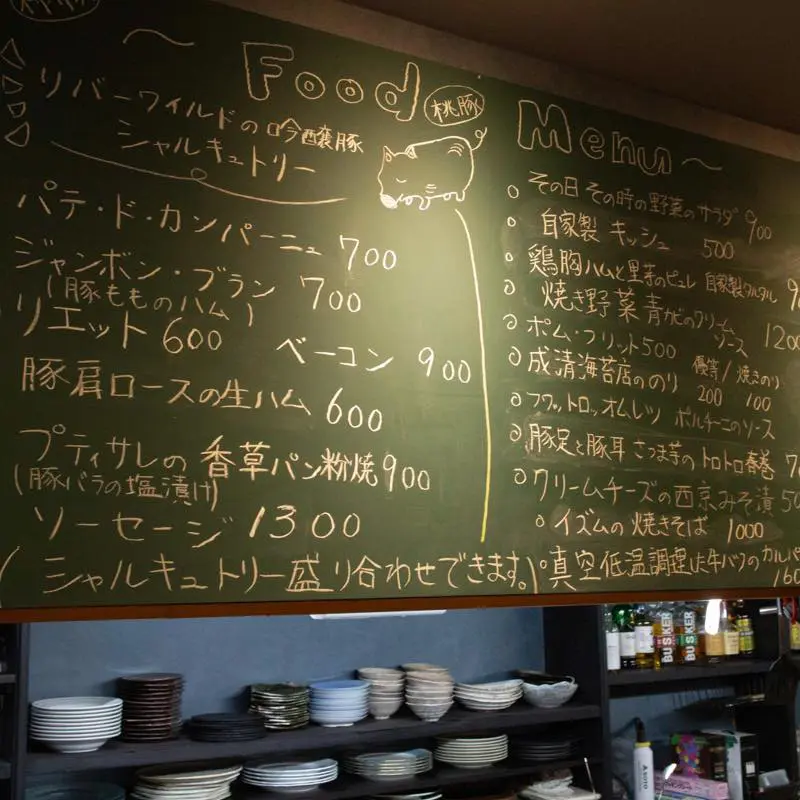 Food
桃豚
リバーワイルドの吟醸豚
シャルキュトリー
パテ・ド・カンパーニュ 700
ジャンボン・ブラン 700
(豚もものハム)
リエット 600
ベーコン 900
豚肩ロースの生ハム 600
プティサレの香草パン粉焼 900
(豚バラの塩漬け)
ソーセージ 1300
(シャルキュトリー盛り合わせできます。)
Menu
その日その時の野菜のサラダ 900
自家製 キッシュ 500
鶏胸ハムと里芋のピュレ 自家製タルタル
焼き野菜 青カビのクリームソース 1200
ポム・フリット 500
成清海苔店ののり 優等/焼きのり
200 100
フワットロッオムレツ ポルチーニのソース
豚足と豚耳 さつま芋のトロトロ春巻
クリームチーズの西京みそ漬
イズムの焼きそば 1000
真空低温調理した牛バラのカルパ
BUSKER
BUSKER
SOTO